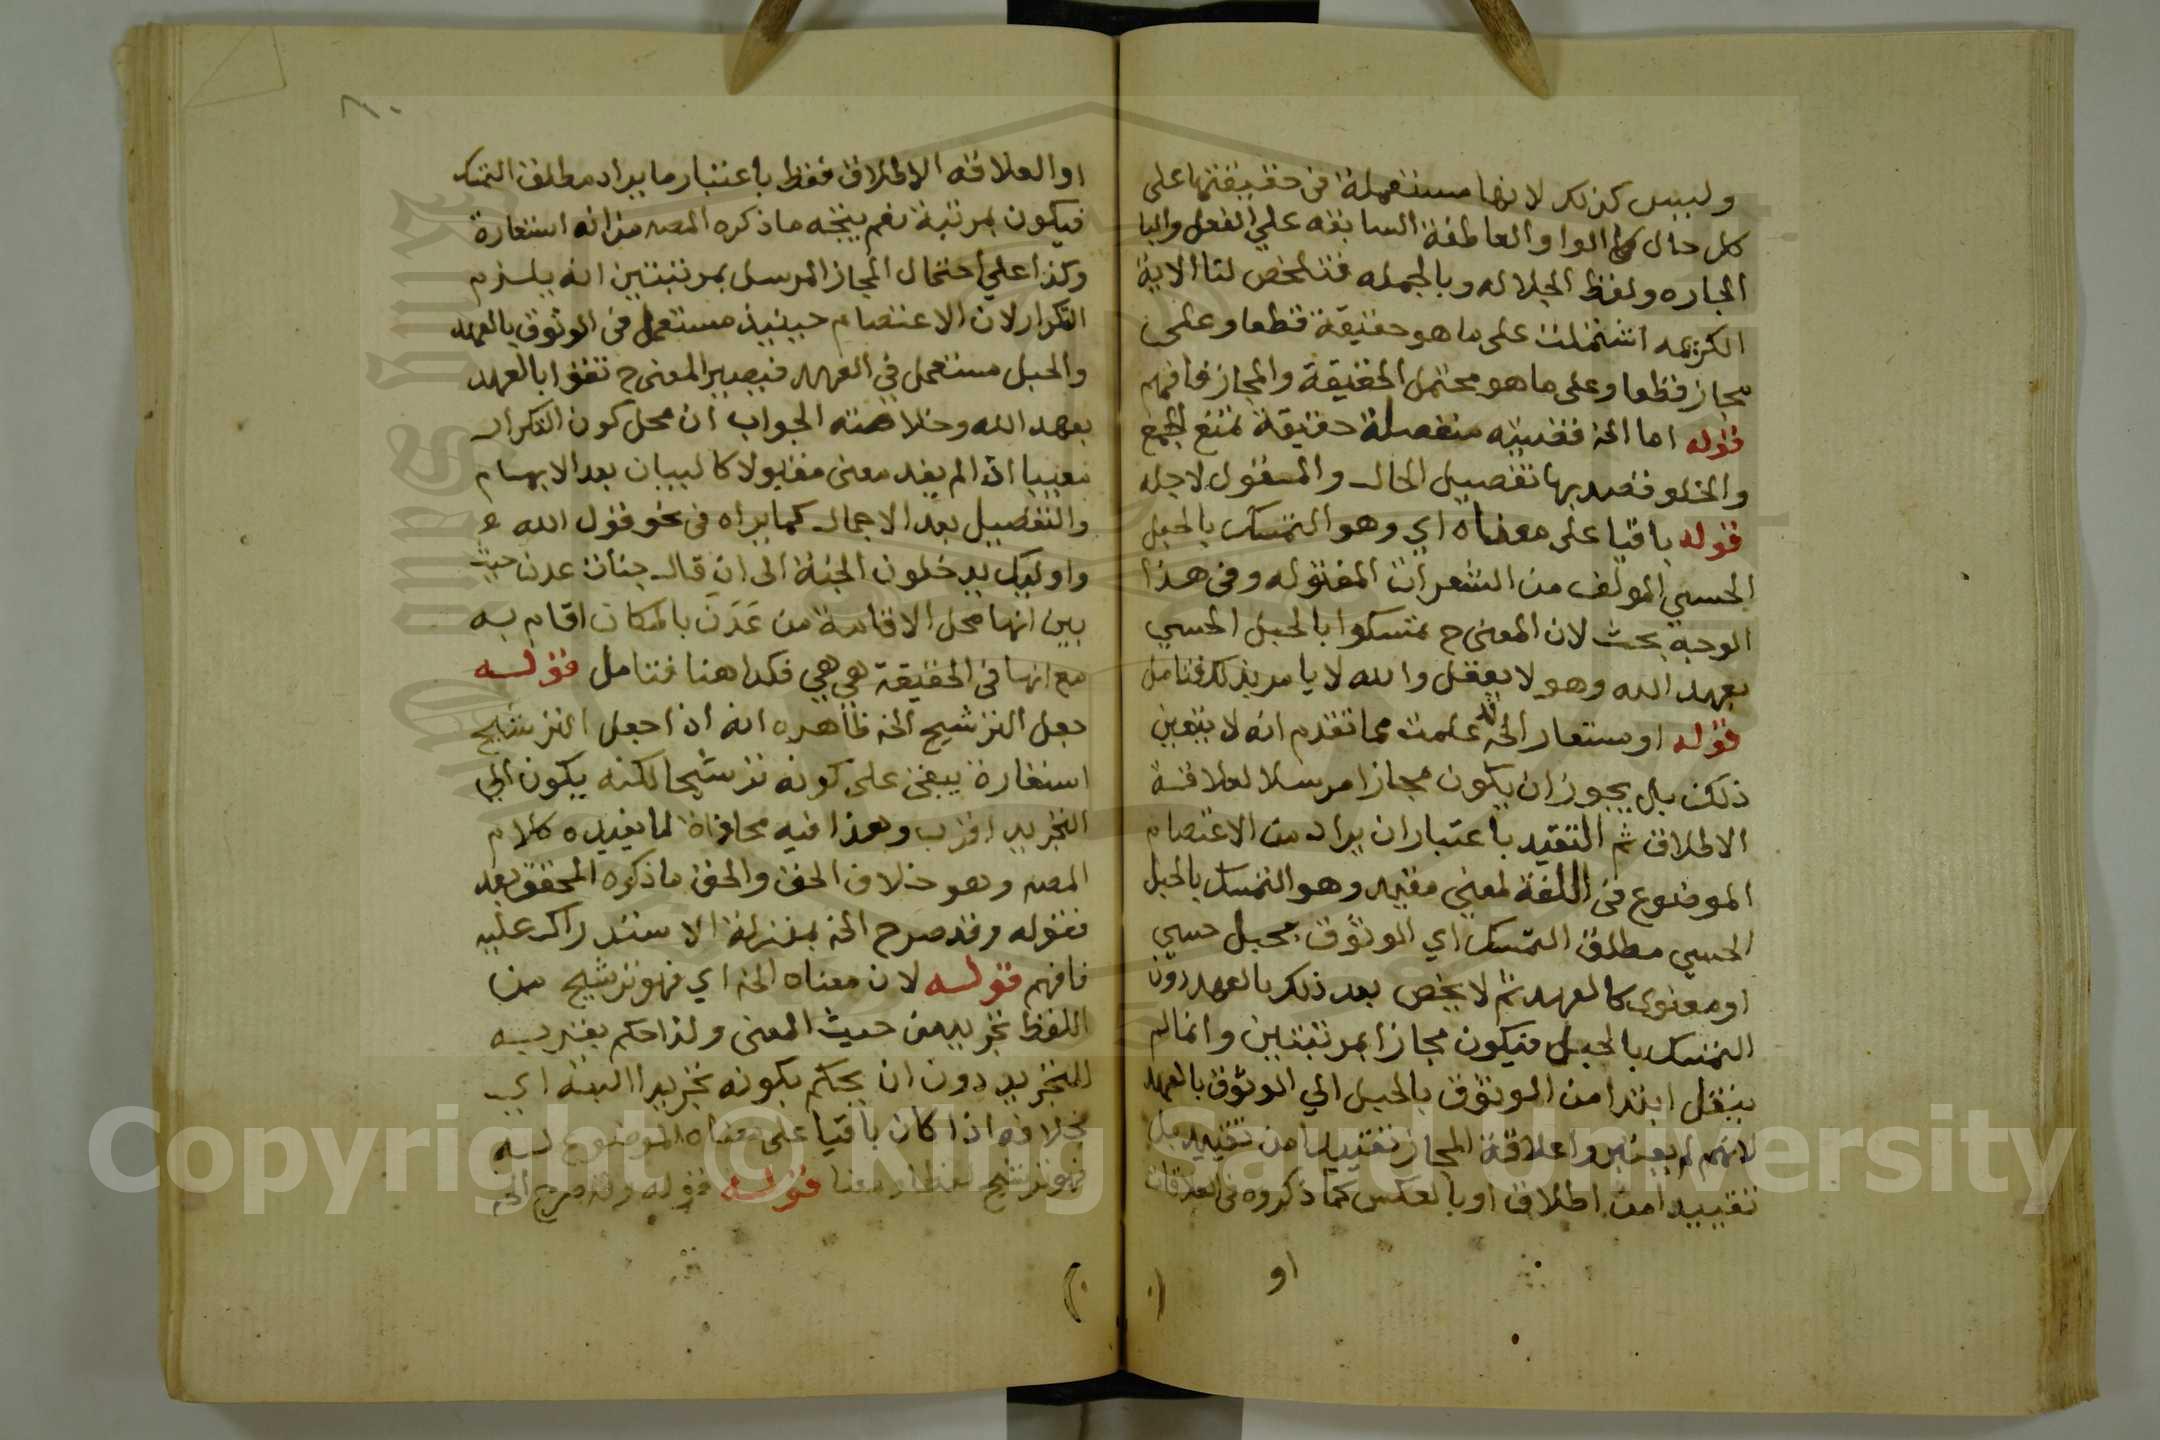 وليس كذلك لانها مستعملة في حقيقتها على
كل حال كما الواو العاطفة السابقه علي الفعل والبا
الجاره ولفظ الجلاله وبالجمله فتلخص لنا الاية
الكريمه اشتملت على ما هو حقيقة قطعا وعلى
مجاز قطعا وعلى ما هو محتمل الحقيقة والمجاز فافهم
قوله اما الخ فقضيته منفصلة حقيقة تمنع الجمع
والخلو فقصد بها تفصيل الحال والمعقول لاجله
قوله باقيا على معناه اي وهو التمسك بالحبل
الحسي المولف من الشعرات المفتوله وفي هذا
الوجه بحث لان المعنى ح تمسكوا بالحبل الحسي
بعهد الله وهو لا يعقل والله لا يامر بذلك فتامل
قوله او مستعار الخ قد علمت مما تقدم انه لا يتعين
ذلك بل يجوز ان يكون مجازا مرسلا لعلاقة
الاطلاق ثم التقيد باعتبار ان يراد من الاعتصام
الموضوع في اللغة لمعني مقيد وهو التمسك بالحبل
الحسي مطلق التمسك اي الوثوق بحبل حسي
او معنوي كالعهد ثم لا يخص بعد ذلك بالعهد دون
التمسك بالحبل فيكون مجازا بمرتبتين وانما لم
ينقل ابتدا من الوثوق بالحبل الي الوثوق بالعهد
لانهم لم يعتبروا علاقة المجاز تقييدا من تقييد بل
تقييدا من اطلاق او بالعكس كما ذكروه في العلاقات
او
٨٠
او العلاقه الاطلاق فقط باعتبار ما يراد مطلق التمسك
فيكون بمرتبة نعم يتجه ما ذكره المصـ من انه استعارة
وكذا علي احتمال المجاز المرسل بمرتبتين انه يلزم
التكرار لان الاعتصام حينيذ مستعمل في الوثوق بالعهد
والحبل مستعمل في العهد فيصير المعنى ح تثقوا بالعهد
بعهد الله وخلاصته الجواب ان محل كون التكرار
معيبا اذا لم يفد معنى مقبولا كالبيان بعد الابهام
والتفصيل بعد الاجمال كما يراه في نحو قول الله
واوليك يدخلون الجنة الى ان قال جنات عدن حيث
بين انها محل الاقامة من عَدَنَ بالمكان اقام به
مع انها في الحقيقة هي هي فكذا هنا فتامل قوله
جعل الترشيح الخ ظاهره انه اذا جعل الترشيح
استعارة يبقى على كونه ترشيحا لكنه يكون الي
التجريد اقرب وهذا فيه محاذاة لما يفيده كلام
المصـ وهو خلاف الحق والحق ما ذكره المحقق بعد
بقوله وقد صرح الخ بمنزلة الاستدراك عليه
فافهم قوله لان معناه الخ اي فهو ترشيح من
اللفظ تجريد من حيث المعنى ولذا حكم بقربه
للتجريد دون ان يحكم بكونه تجريدا البتة اي
بخلافه اذا كان باقيا على معناه الموضوع له
فهو ترشيح لفظا ومعنا قوله قوله وقد صرح الخ
Copyright © King Saud University